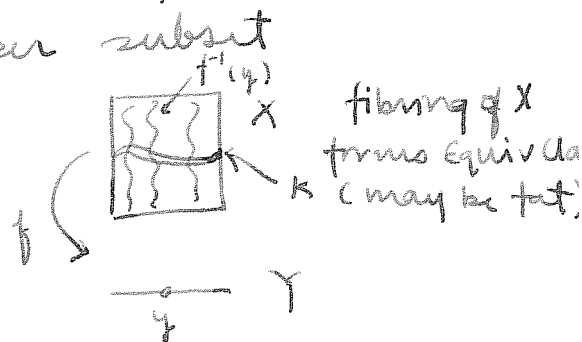 subset
f⁻¹(y)
X
fibring of X
forms Equiv Cla
K
(may be fat)
f
Y
y